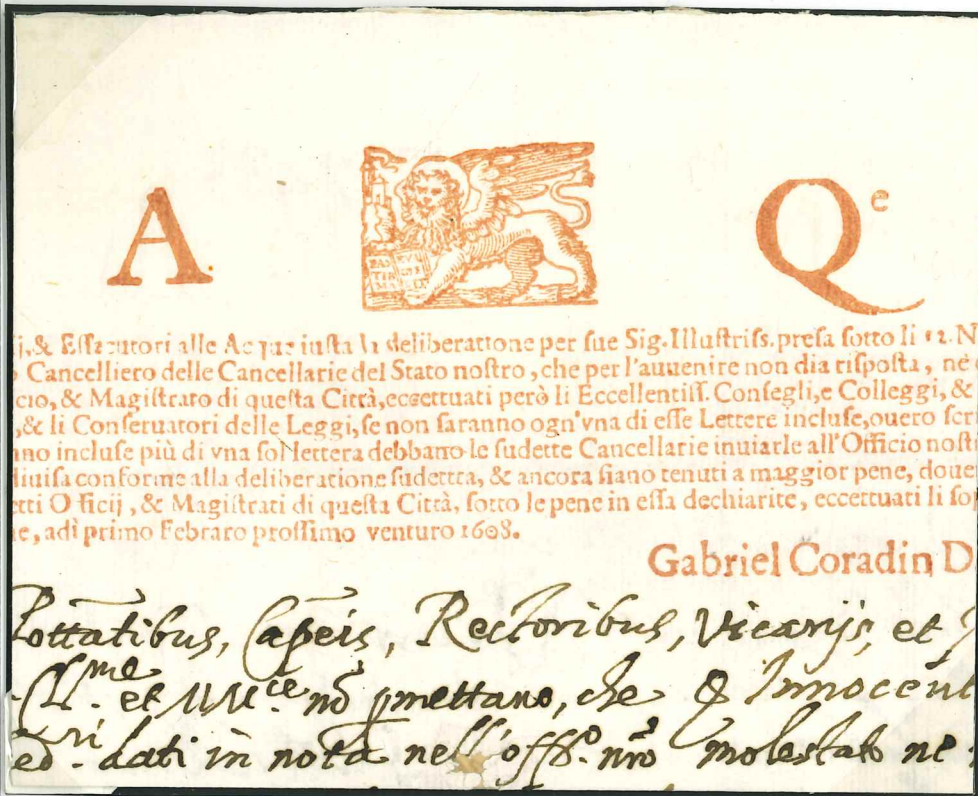 A. Qᵉ
PAX EVAN
TIBI GELI
MAR STA
ij, & Essecutori alle Acque iusta la deliberatione per sue Sig. Illustriss. presa sotto li 12. N
Cancelliero delle Cancellarie del Stato nostro, che per l'auuenire non dia risposta, nè
cio, & Magistrato di questa Città, eccettuati però li Eccellentiss. Consegli, e Colleggi, &
, & li Conseruatori delle Leggi, se non saranno ogn'vna di esse Lettere incluse, ouero scri
nno incluse più di vna sol lettera debbano le sudette Cancellarie inuiarle all'Officio nost
diuisa conforme alla deliberatione sudettta, & ancora siano tenuti a maggior pene, doue
etti Officij, & Magistrati di questa Città, sotto le pene in essa dechiarite, eccettuati li so
ne, adì primo Febraro prossimo venturo 1608.
Gabriel Coradin D
Pottātibus, Capēis, Rectoribus, Vicarijs, et
Cl.ᵐᵉ et M.ᶜᵉ nō pmettano, che Innocent
ri dati in nota nell'off.º nrō molestato ne